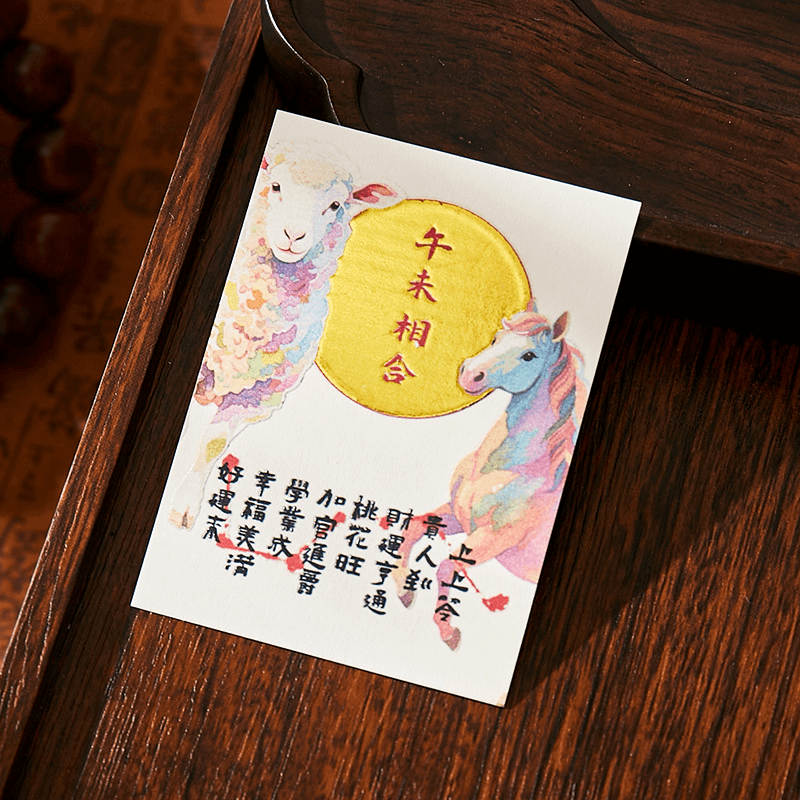 午未相合
上上签
貴人到
財運亨通
桃花旺
加官進爵
學業成
幸福美滿
好運來